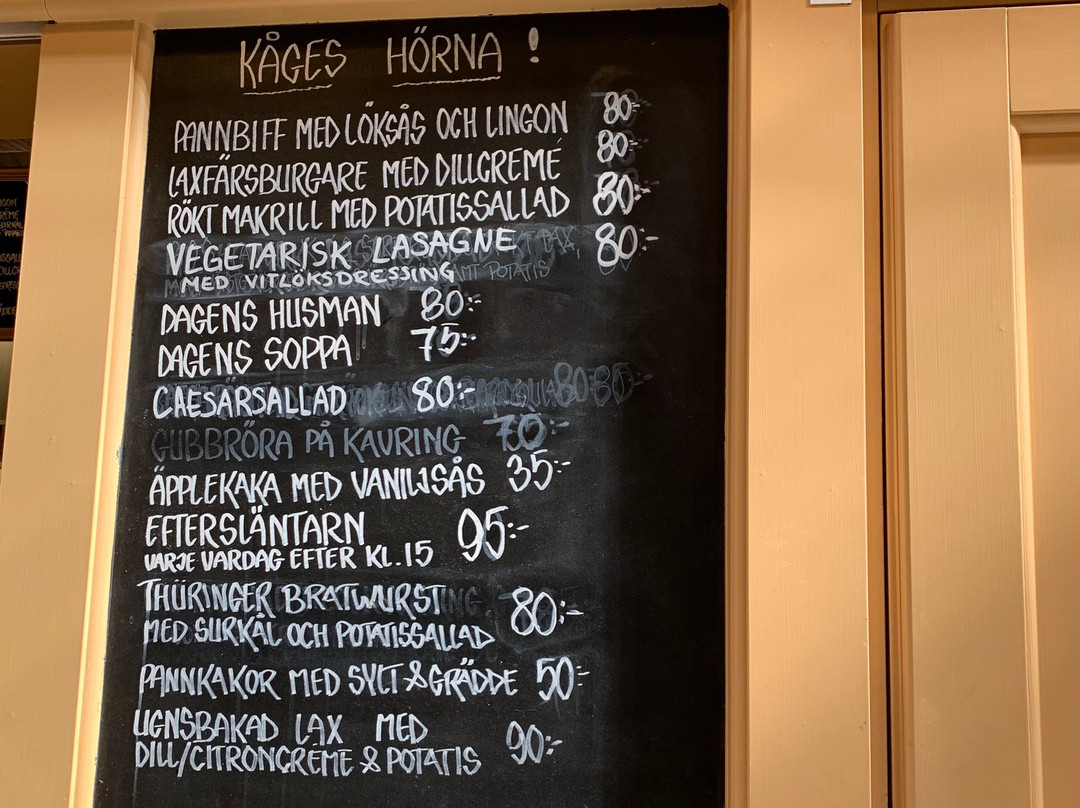 KÅGES HÖRNA !
PANNBIFF MED LÖKSÅS OCH LINGON 80-
LAXFÄRSBURGARE MED DILLCREMÉ 80-
RÖKT MAKRILL MED POTATISSALLAD 80:-
VEGETARISK LASAGNE 80:-
MED VITLÖKSDRESSING
DAGENS HUSMAN 80:-
DAGENS SOPPA 75:-
CAESARSALLAD 80:-
GUBBRÖRA PÅ KAVRING 70:-
ÄPPLEKAKA MED VANILJSÅS 35:-
EFTERSLÄNTARN 95:-
VARJE VARDAG EFTER KL.15
THÜRINGER BRATWURST 80:-
MED SURKÅL OCH POTATISSALLAD
PANNKAKOR MED SYLT & GRÄDDE 50:-
UGNSBAKAD LAX MED 90:-
DILL/CITRONCRÈME & POTATIS